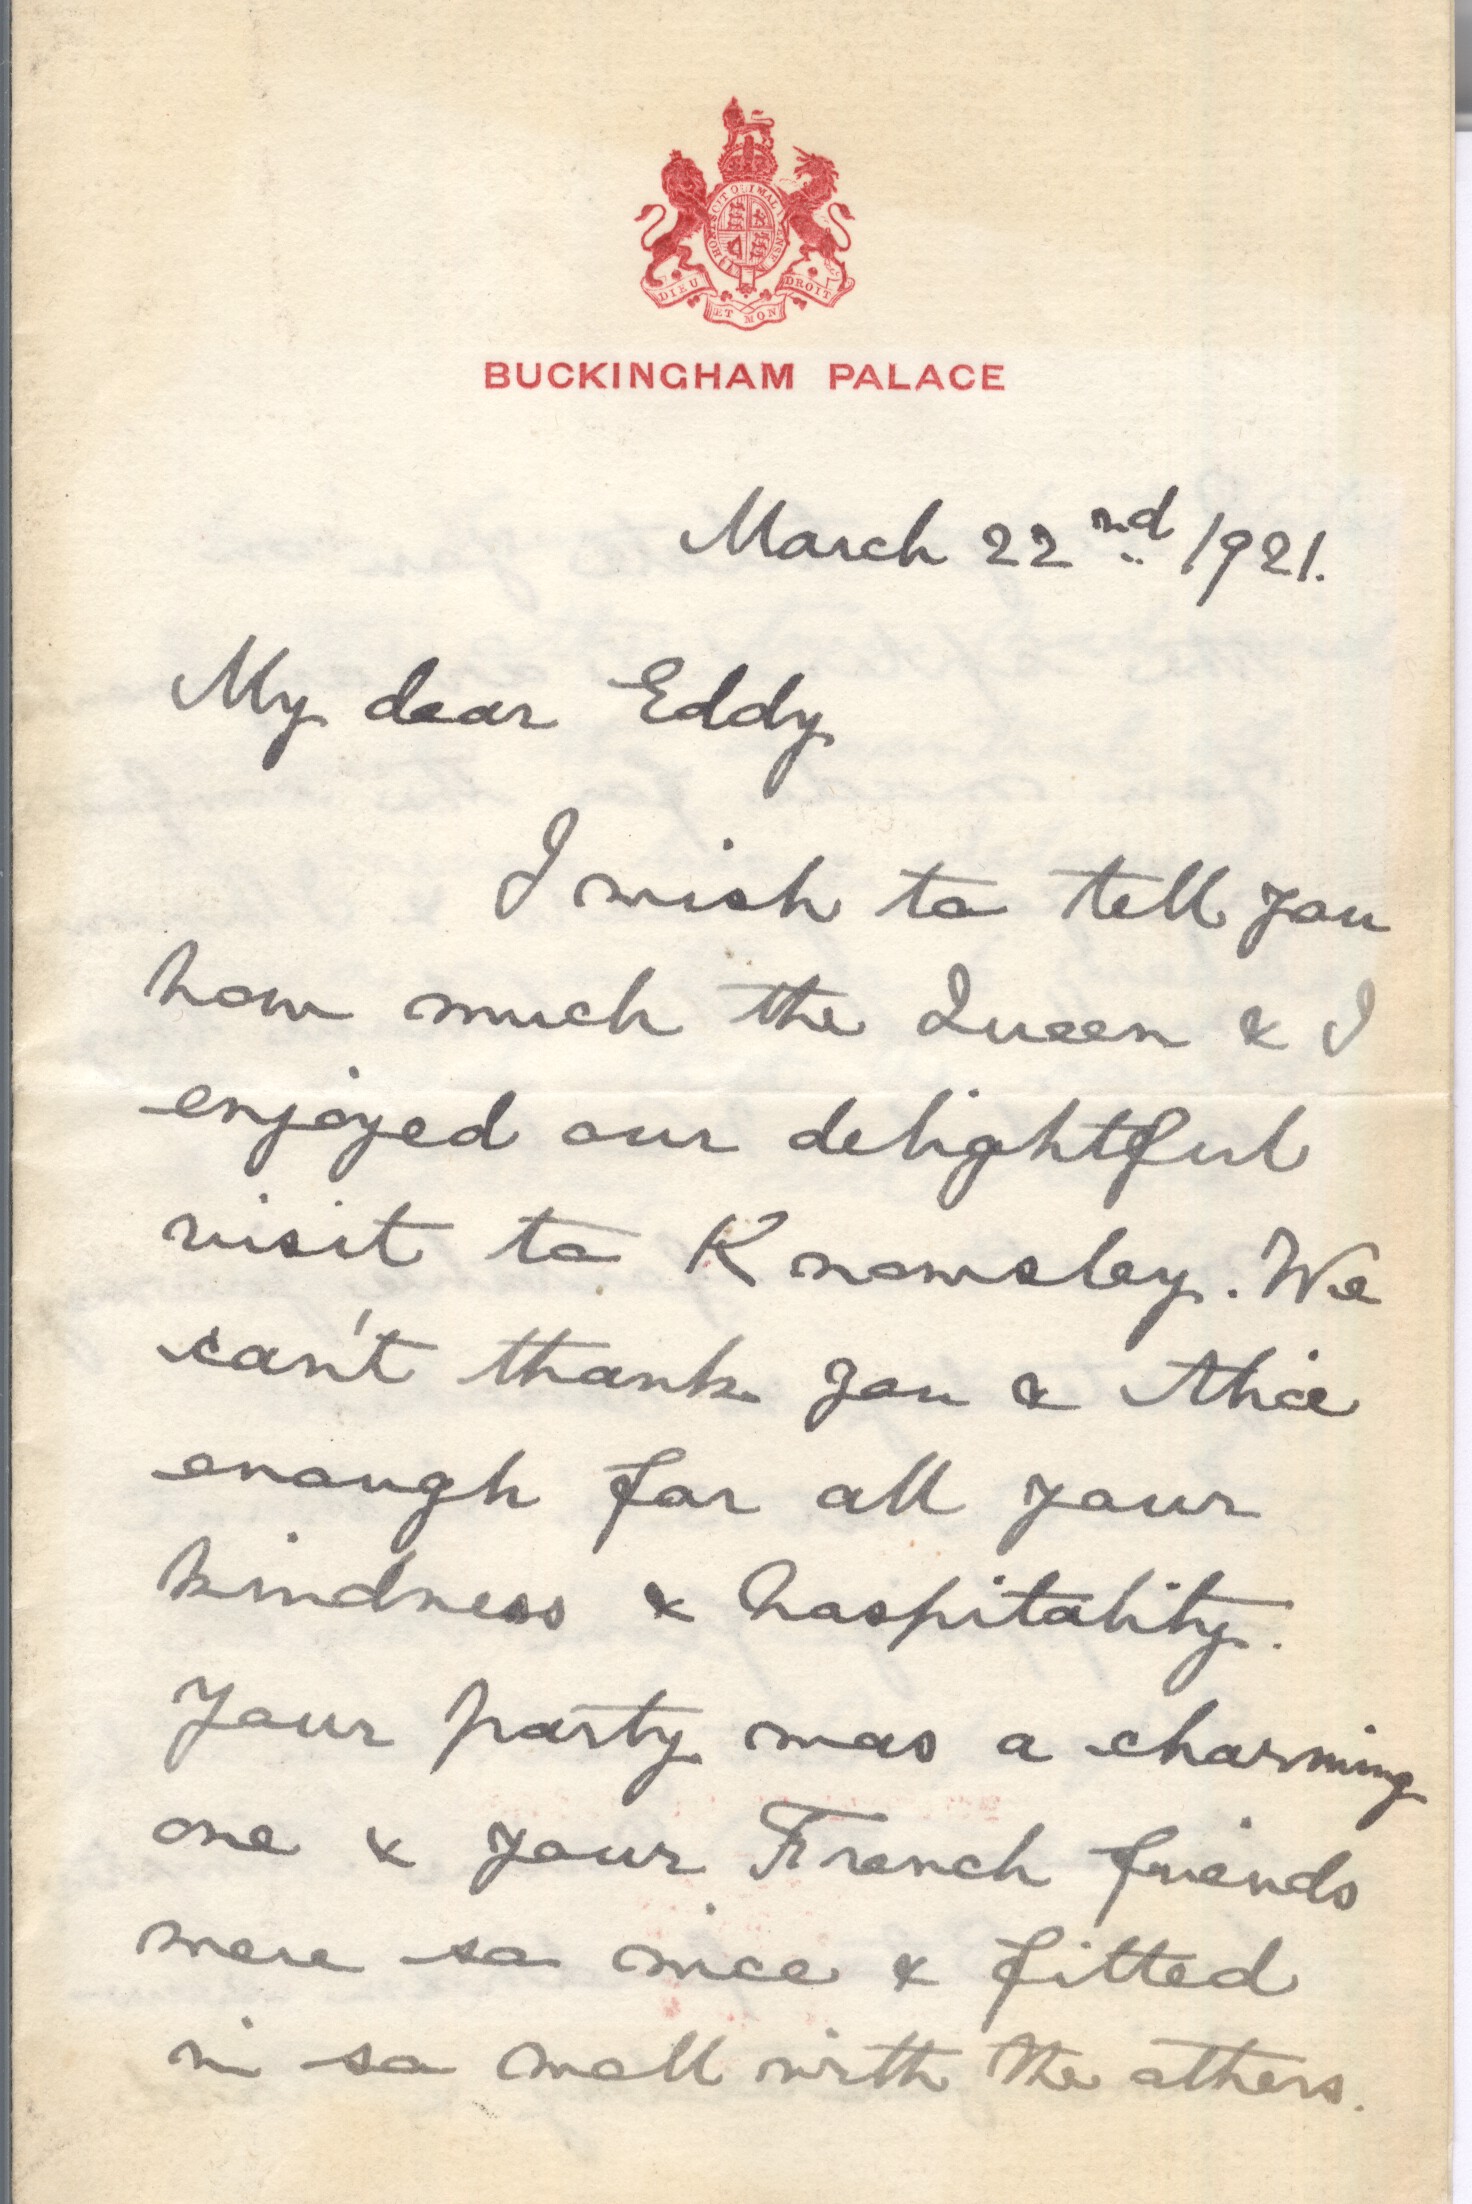 HONI SOIT QUI MAL Y PENSE
DIEU ET MON DROIT
BUCKINGHAM PALACE
March 22nd 1921.
My dear Eddy
I wish to tell you
how much the Queen & I
enjoyed our delightful
visit to Knowsley. We
can't thank you & Alice
enough for all your
kindness & hospitality.
Your party was a charming
one & your French friends
were so nice & fitted
in so well with the others.